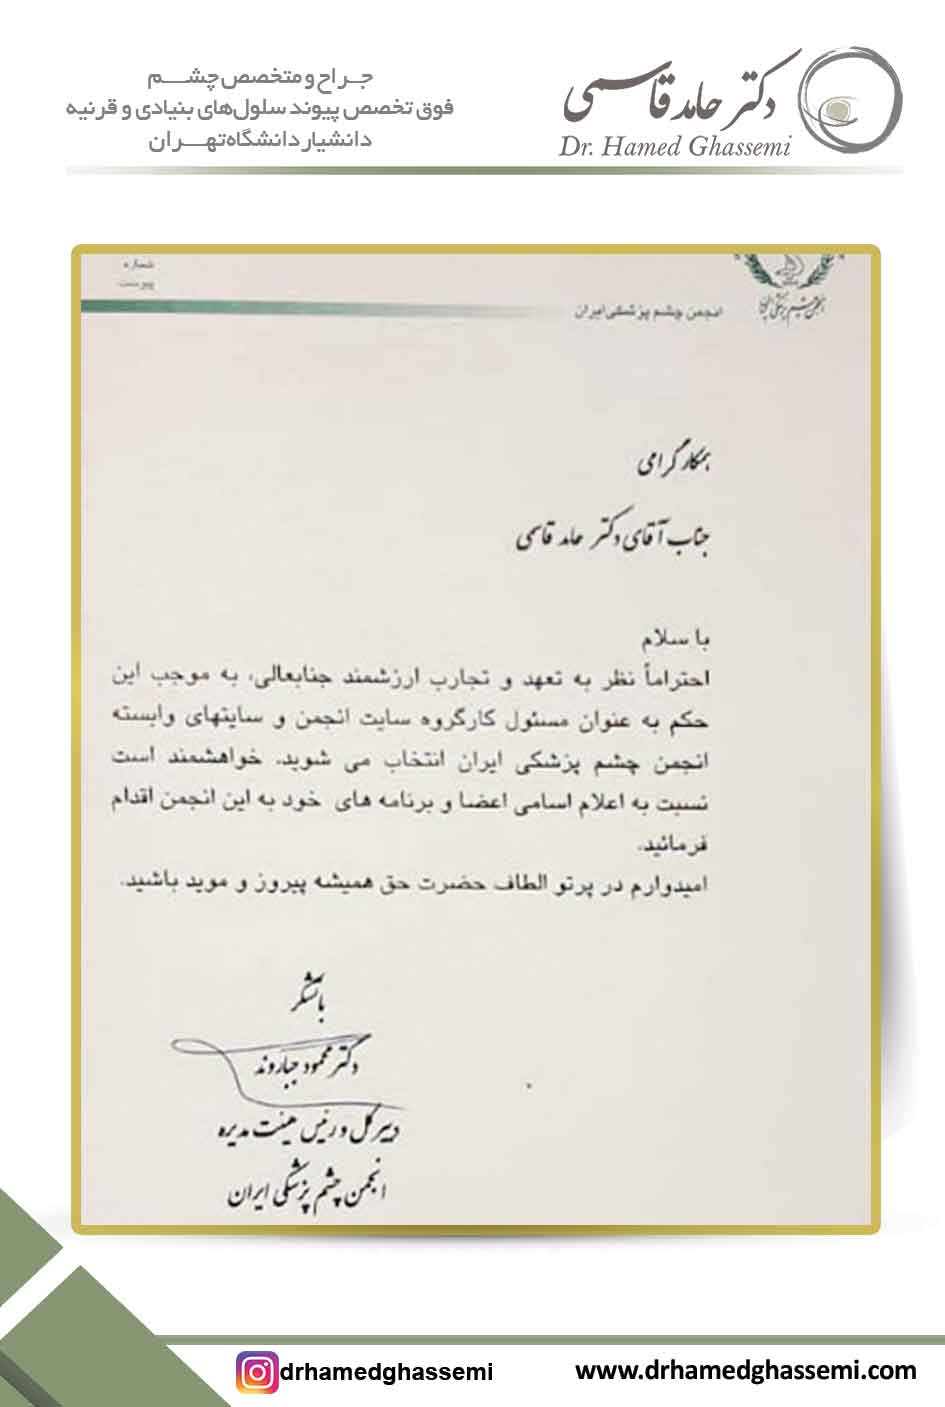 دکتر حامد قاسمی
Dr. Hamed Ghassemi
جراح و متخصص چشم
فوق تخصص پیوند سلول‌های بنیادی و قرنیه
دانشیار دانشگاه تهران
شماره
پیوست
انجمن چشم پزشکی ایران
انجمن چشم پزشکی ایران
همکار گرامی
جناب آقای دکتر حامد قاسمی
با سلام
احتراماً نظر به تعهد و تجارب ارزشمند جنابعالی، به موجب این
حکم به عنوان مسئول کارگروه سایت انجمن و سایتهای وابسته
انجمن چشم پزشکی ایران انتخاب می شوید. خواهشمند است
نسبت به اعلام اسامی اعضا و برنامه های خود به این انجمن اقدام
فرمائید.
امیدوارم در پرتو الطاف حضرت حق همیشه پیروز و موید باشید.
با تشکر
دکتر محمود جباروند
دبیر کل و رئیس هیئت مدیره
انجمن چشم پزشکی ایران
drhamedghassemi
www.drhamedghassemi.com